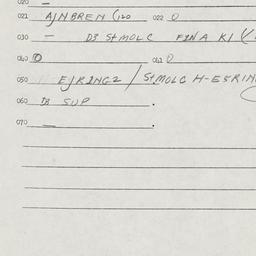 020 —
021 AJNBREN (120 022 0
030 — D3 StMOLC FINA KI
040 0 041 0
050 EJRINGZ / StMOLC H-ESRIN
060 D3 SUP .
070 — .